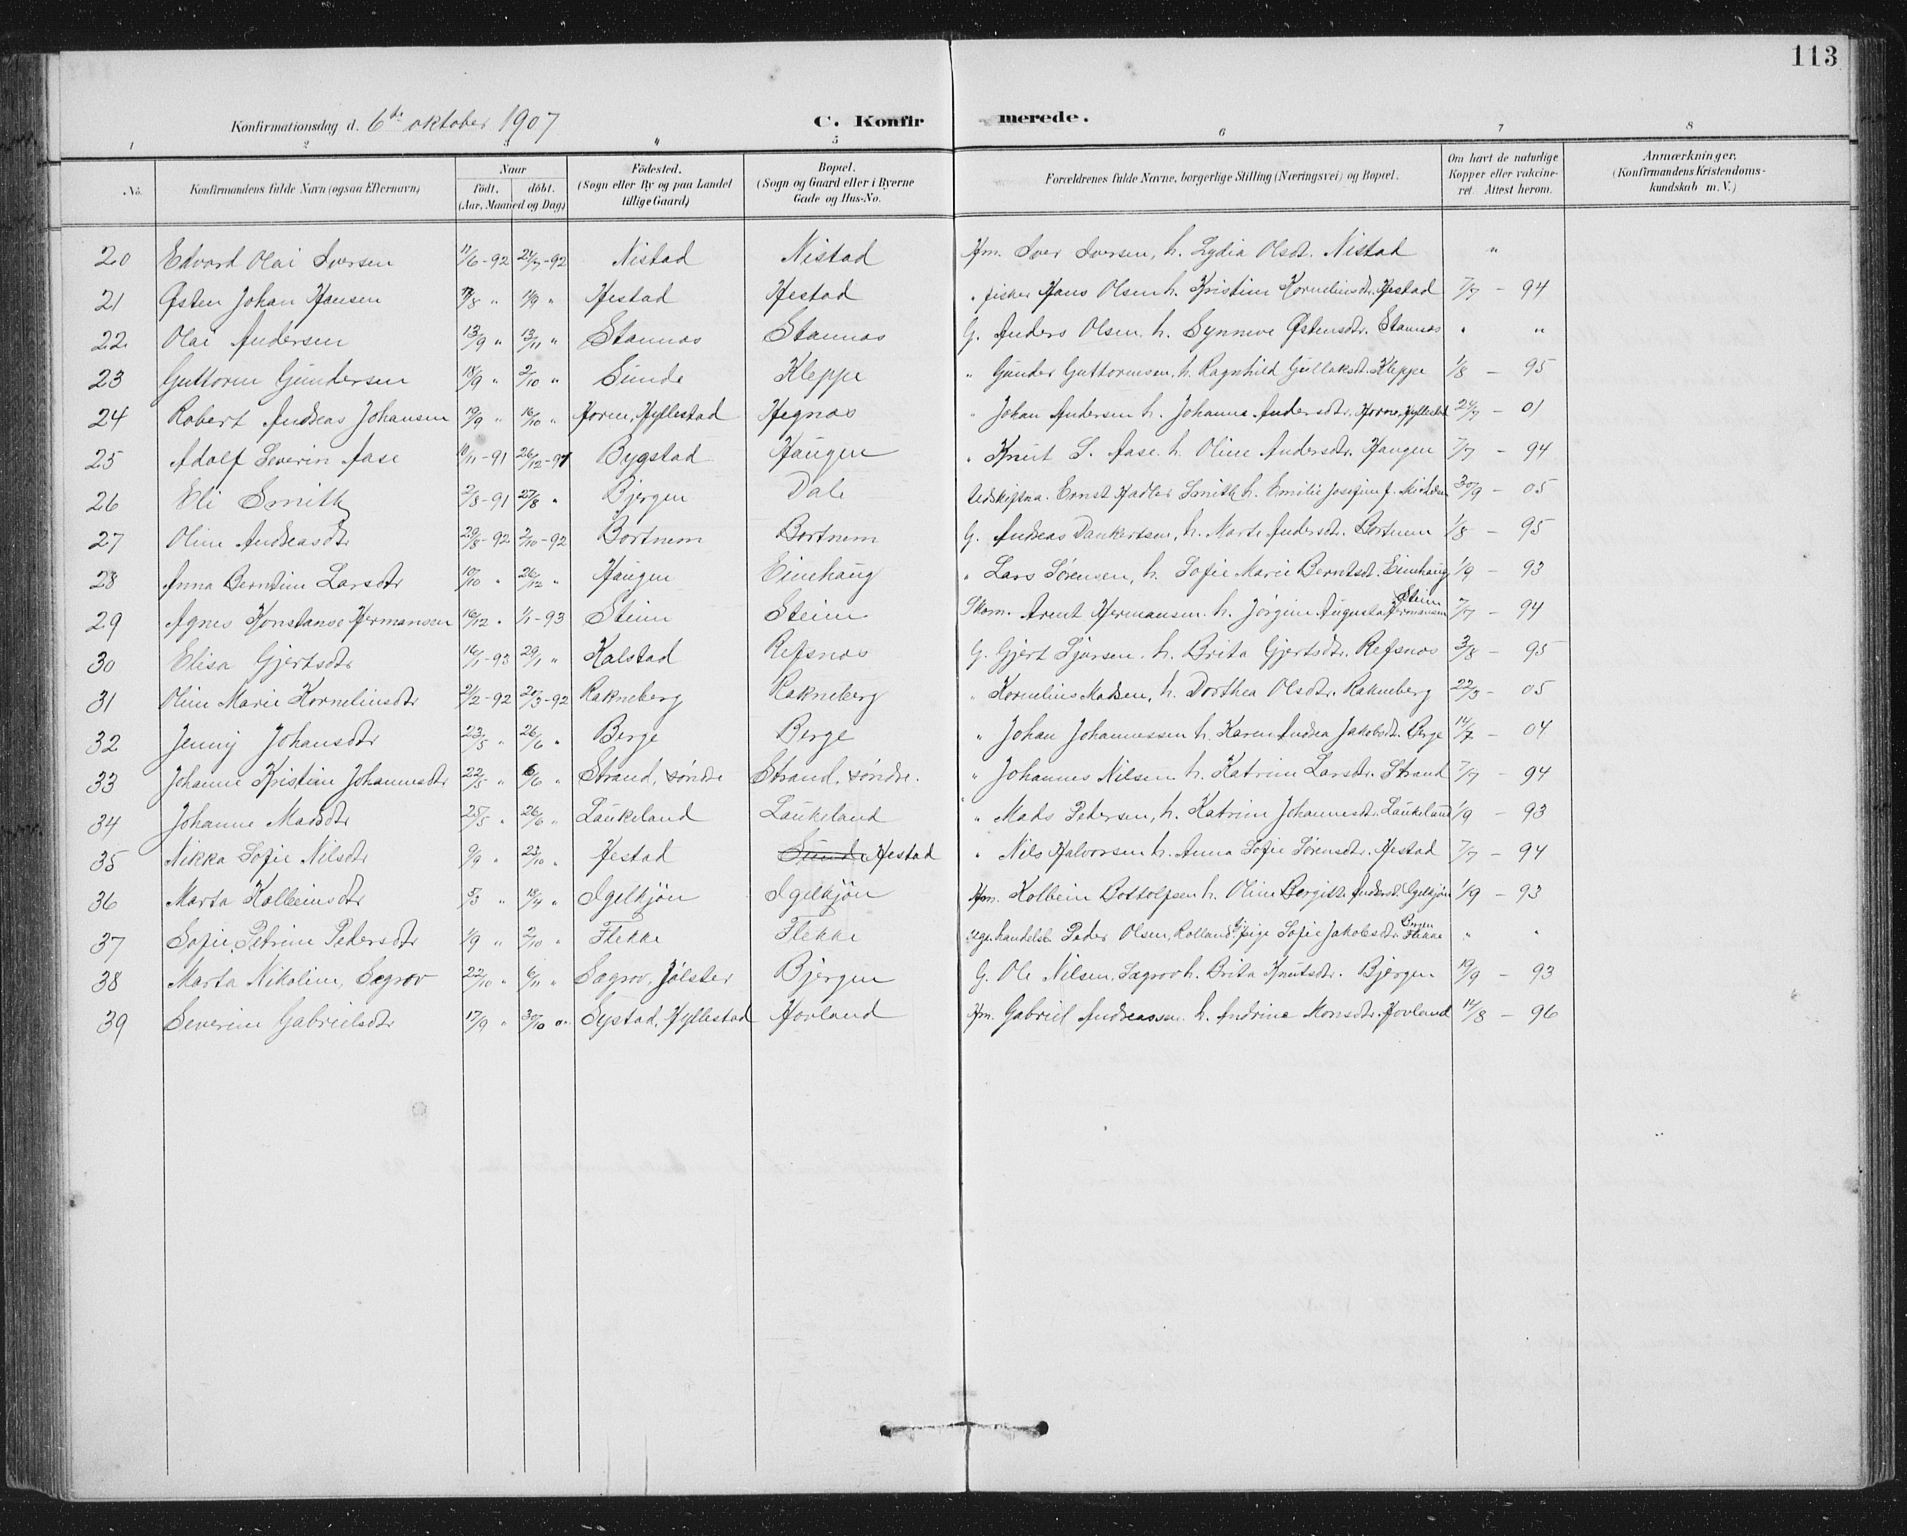 113
Konfirmationsdag d. 6te oktober 1907 C. Konfir merede.
1 2 3 4 5 6 7 8
No. Konfirmandens fulde Navn (ogsaa Efternavn) Naar födt, döbt. (Aar, Maaned og Dag) Födested. (Sogn eller By og paa Landet tillige Gaard) Bopæl. (Sogn og Gaard eller i Byerne Gade og Hus-No. Forældrenes fulde Navne, borgerlige Stilling (Næringsvei) og Bopæl. Om havt de naturlige Kopper eller vakcineret. Attest herom. Anmærkninger. (Konfirmandens Kristendomskundskab m. V.)
20 Edvard Olai Iversen 11/6-92 24/7-92 Nistad Nistad Hm. Iver Iversen, h. Lydia Olsdt. Nistad "
21 Østen Johan Hansen /8 " /9 " Hestad Hestad " fisker Hans Olsen h. Kristine Korneliusdtr. Hestad 7/7 - 94
22 Olai Andersen 13/9 " 13/11 " Stannas Stannas G. Anders Olsen h. Synneve Østensdtr. Stannas " "
23 Guttorm Gundersen 18/9 " 2/10 " Sunde Kleppe " Gunder Guttormsen, h. Ragnhild Gullaksdt. Kleppe 1/8 - 95
24 Robert Andreas Johansen 19/9 " 16/10 " Horne, Hyllestad Hegnas " Johan Andersen h. Johanna Andersdtr. Horne, Hyllestad 24/7 - 01
25 Adolf Severin Aase 10/11-91 26/12-91 Bygstad Haugen " Knut S. Aase h. Oline Andersdtr. Haugen 7/7 - 94
26 Eli Smith 2/8-91 27/8 " Bjergen Dale Ernst Hadler Smith h. Emilie Josefine f. 30/9 - 05
27 Oline Andreasdtr 29/8-92 2/10-92 Bortnem Bortnem G. Andreas Dankertsen, h. Marte Andersdt. Bortnem 1/8 - 95
28 Anna Berntine Larsdtr 10/10 " 26/12 " Haugen Einehaug " Lars Sørensen, h. Sofie Marie Berntsdt. Einehaug 1/9 - 93
29 Agnes Konstanse Hermansen 16/12 " 1/1-93 Steien Steien Skom. Arent Hermansen h. Jørgine Augusta Hermansen Steien 7/7 - 94
30 Elisa Gjertsdtr 16/1-93 29/1 " Kalstad Refsnas G. Gjert Sjursen h. Brita Gjertsdtr. Refsnas 3/8 - 95
31 Oline Marie Korneliusdtr 21/2-92 20/3-92 Rakneberg Rakneberg " Kornelius Madsen, h. Dorthea Olsdtr. Rakneberg 22/3 - 05
32 Jenny Johansdtr 23/5 " 26/6 " Berge Berge " Johan Johannessen h. Karen Andrea Jakobsdt. Berge 14/7 - 04
33 Johanne Kristine Johannesdtr 22/5 " 6/6 " Strand, søndre Strand, søndre. " Johannes Nilsen h. Katrine Larsdtr. Strand 7/7 - 94
34 Johanne Madsdtr 25/5 " 26/6 " Laukeland Laukeland " Mads Pedersen, h. Katrine Johannesdtr. Laukeland 1/9 - 93
35 Nikka Sofie Nilsdtr 9/9 " 23/10 " Hestad Sunde Hestad " Nils Halvorsen h. Anna Sofie Sørensdtr. Hestad 7/7 - 94
36 Marta Kolbeinsdtr 5/3 " 18/4 " Igelkjøn Igelkjøn Hm. Kolbein Bottolfsen h. Oline Bergitte Andersdt. Igelkjøn 1/9 - 93
37 Sofie Petrine Pedersdtr 1/9 " 2/10 " Flekke Flekke Ugr. handelsb. Peder Olsen, Rolland og pige Sofie Jakobsdtr Flekke " "
38 Marta Nikoline Sægrov 22/10 " 6/11 " Sægrov, Jølster Bjergen G. Ole Nilsen Sægrov h. Brita Knutsdtr. Bjergen 19/9 - 93
39 Severine Gabrielsdtr 17/9 " 30/10 " Systad, Hyllestad Hovland Hm. Gabriel Andreassen h. Andrine Monsdtr. Hovland 14/8 - 96